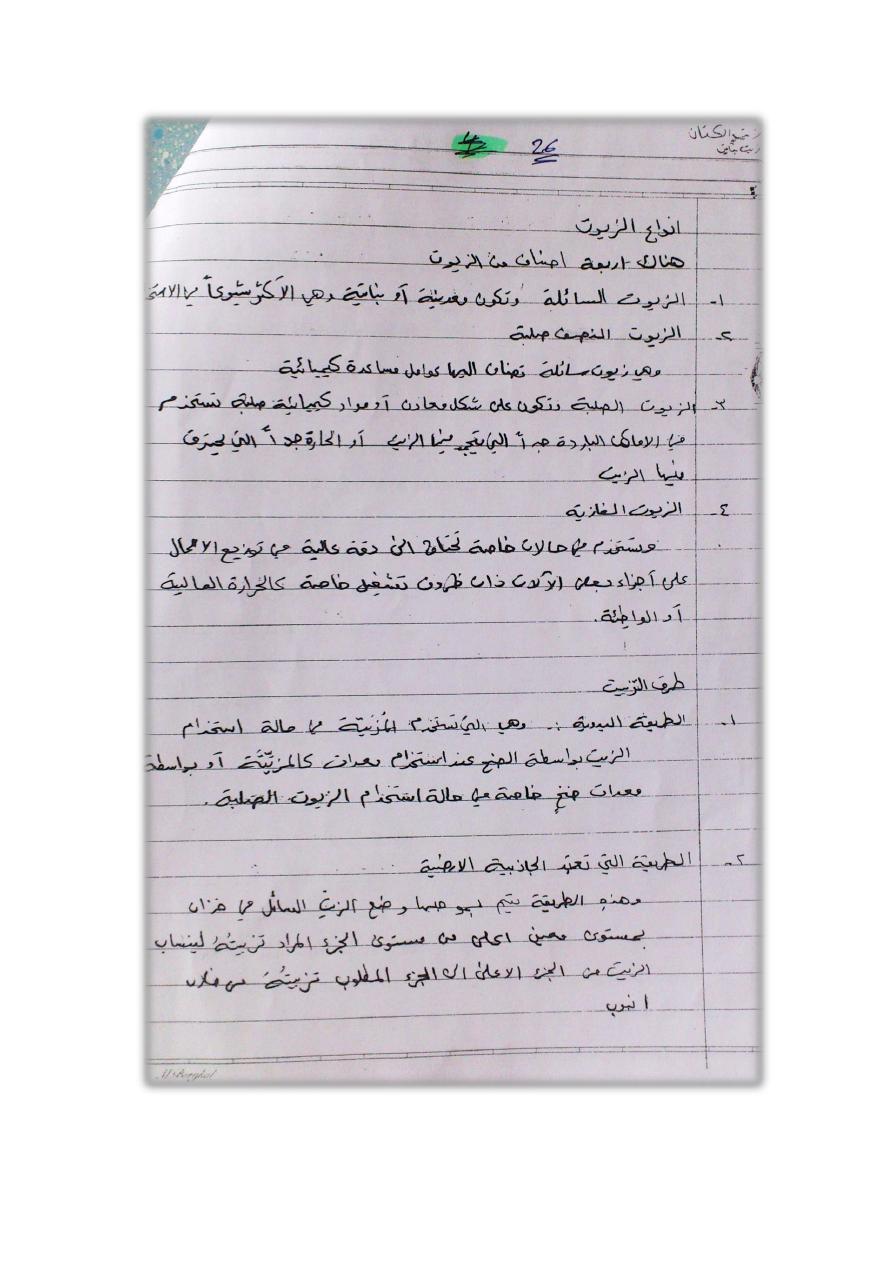 26
انواع الزيوت
هناك اربعة اصناف من الزيوت
١- الزيوت السائلة وتكون معدنية أو نباتية وهي الأكثر شيوعاً في
٢- الزيوت النصف صلبة
وهي زيوت سائلة تضاف اليها عوامل مساعدة كيميائية
٣- الزيوت الصلبة وتكون على شكل معادن أو مواد كيميائية صلبة تستخدم
في الاماكن الباردة جداً التي يتجمد فيها الزيت أو الحارة جداً التي يحترق
فيها الزيت
٤- الزيوت الغازية
وتستخدم في حالات خاصة تحتاج الى دقة عالية في توزيع الاحمال
على أجزاء بعض الآلات ذات ظروف تشغيل خاصة كالحرارة العالية
أو الواطئة.
طرق التزييت
١- الطريقة اليدوية :- وهي التي تستخدم المُزيّتة في حالة استخدام
الزيت بواسطة الضخ عند استخدام معدات كالمزيّتَة أو بواسطة
معدات ضخٍ خاصة في حالة استخدام الزيوت الصلبة .
٢- الطريقة التي تعتمد الجاذبية الارضية
وهذه الطريقة يتم بموجبها وضع الزيت السائل في خزان
بمستوى معين اعلى من مستوى الجزء المراد تزييتهُ لينساب
الزيت من الجزء الاعلى الى الجزء المطلوب تزييتهُ من خلال
انبوب